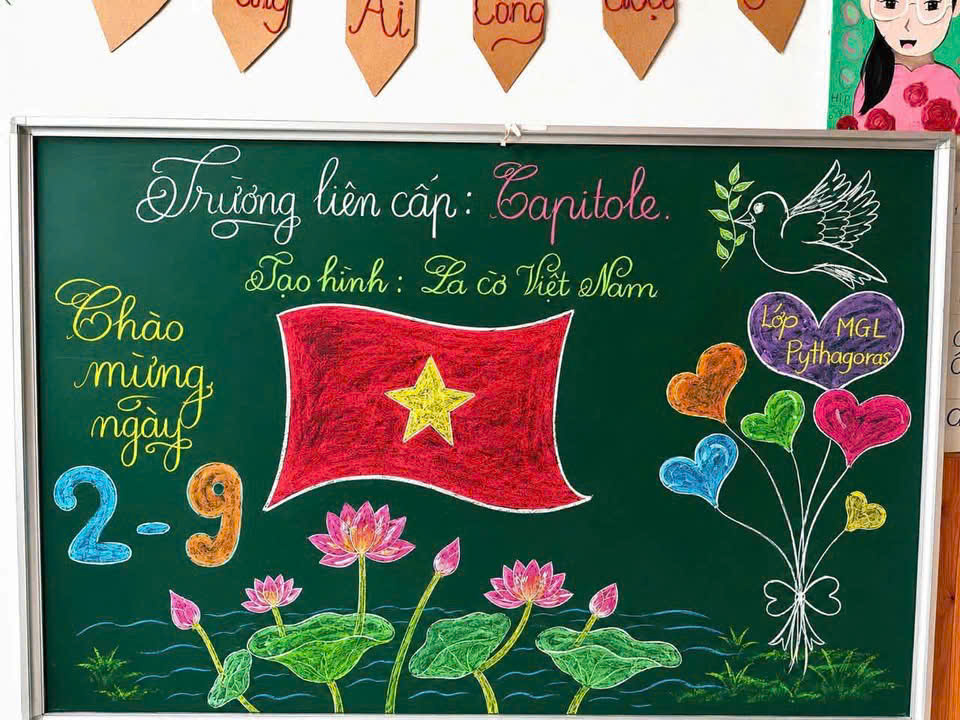 Ai
Công
Trường liên cấp: Capitole.
Tạo hình: Lá cờ Việt Nam
Chào
mừng
ngày
2-9
Lớp MGL
Pythagoras